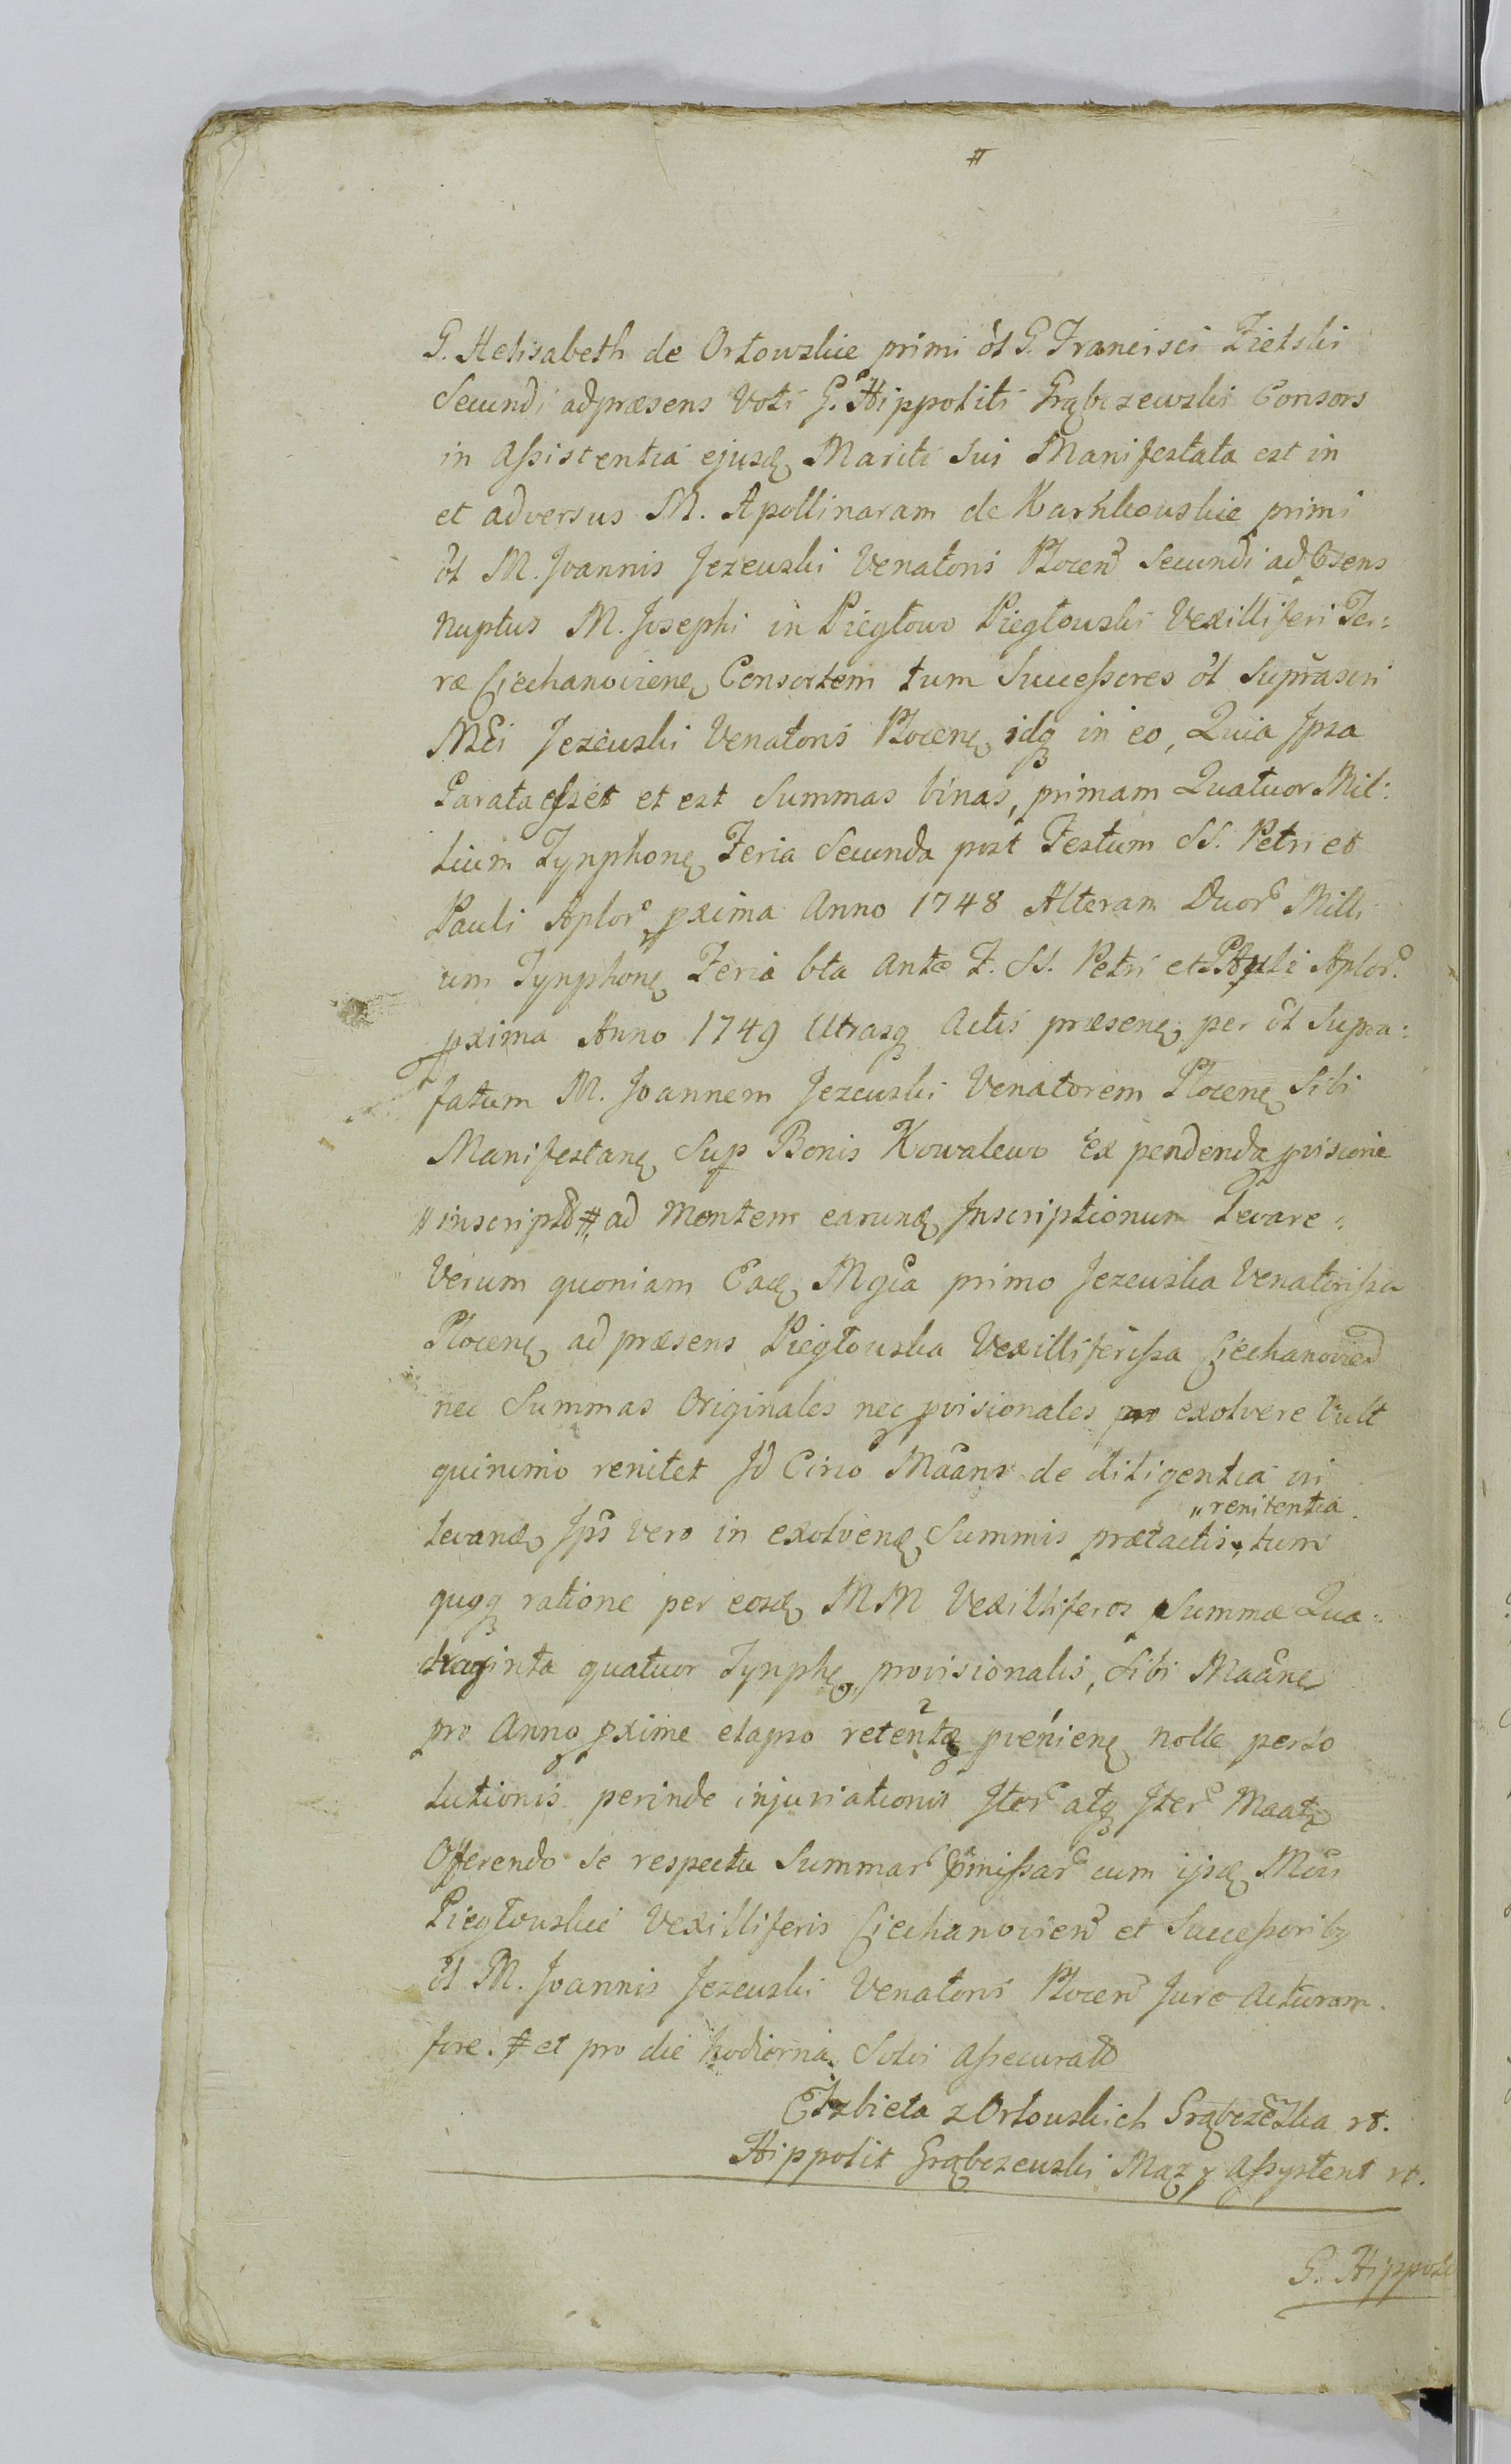 #
G. Helisabeth de Orłowskie primi ol G. Francisci Zielski
Secundi adpræsens Voti G. Hippoliti Grąbczewski Consors
in assistentia ejusd Mariti Sui Manifestata est in
et adversus M. Apollinaram de Karnkowskie primi
ol M. Joannis Jezewski Venatoris Płocen Secundi ad Psens
Nuptus M. Josephi in Piegłowo Piegłowski Vexilliferi Ter:
ræ Ciechanoviens Consortem tum Successores ol Suprascri
Mfci Jezewski Venatoris Płocens idq in eo, Quia Ipsa
Parata esset et est Summas binas, primam Quatuor Mil:
lium Tynphons Feria Secunda post Festum SS. Petri et
Pauli Aplor pxima Anno 1748 Alteram Duor Milli
um Tynphons Feria 6ta Ante F. SS. Petri et Pauli Aplor
pxima Anno 1749 Utrasq Actis præsens per ol Supra:
fatum M. Joannem Jezewski Venatorem Płocens Sibi
Manifestans Sup Bonis Kowalewo Ex pendenda pvisione
"inscript # ad Mentem earund Inscriptionum Levare:
Verum quoniam Ead Mgca primo Jezewska Venatorissa
Płocens ad præsens Piegłowska Vexilliferissa Ciechanovien
nec Summas Originales nec pvisionales exolvere Vult
quinimo renitet Id Circo Maans de diligentia in
"renitentia
levand Ips vero in exolvend Summis prætactis, tum
quoq ratione per eosd MM Vexilliferos Summæ Qua:
draginta quatuor Tynph provisionalis, Sibi Maans
pro Anno pxime elapso retentæ pveniens nolle perso
lutionis perinde injuriationis Iter atq Iter Maat
Offerendo se respectu Summar pmissar cum ijsd Mcis
Piegłowskie Vexilliferis Ciechanovien et Successorib
ol M. Joannis Jezewski Venatoris Płocen Jure Acturam
fore. # et pro die hodierna Solvi assecurat
Elzbieta z Orłowskich Grąbczeska rt.
Hippolit Grąbczewski Mąz y Assystent rt.
G. Hippoli